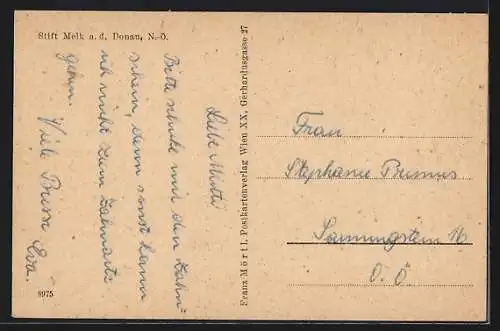 Stift Melk a. d. Donau, N.-Ö.
Liebe Mutti
Bitte schicke mir den Zahn-
schein, denn sonst kann
ich nicht zum Zahnarzt
gehen.
Viele Bussi Eva.
Franz Mörtl, Postkartenverlag Wien XX, Gerhardusgasse 27
Frau
Stephanie
Sarmingstein
O. Ö
8975